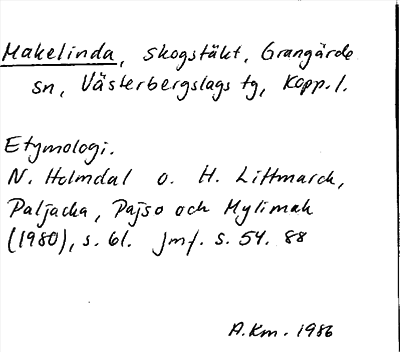 Makelinda, skogstäkt, Grangärde
sn, Västerbergslags tg, Kopp. l.
Etymologi.
N. Holmdal o. H. Littmarck,
Paljacka, Pajso och Mylimak
(1980), s. 61. Jmf. s. 54. 88
A.Km. 1986